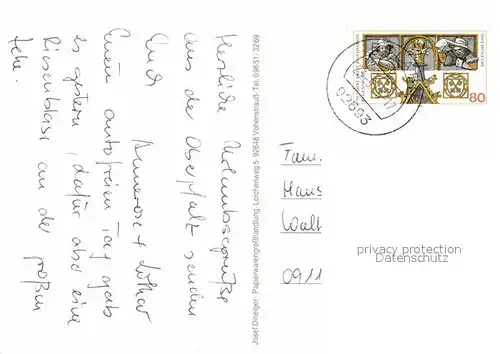 Herzliche Urlaubsgrüße
aus der Oberpfalz senden
Euch Annerose + Lothar
Einen autofreien Tag gab
es gestern, dafür aber eine
Riesenblase an der großen
Zehe.
Josef Dineiger · Papierwarengroßhandlung · Leichenweg 5 · 92648 Vohenstrauß · Tel. 09651/3269
80
92693
Fam.
Hans
Walt
0911
privacy protection
Datenschutz